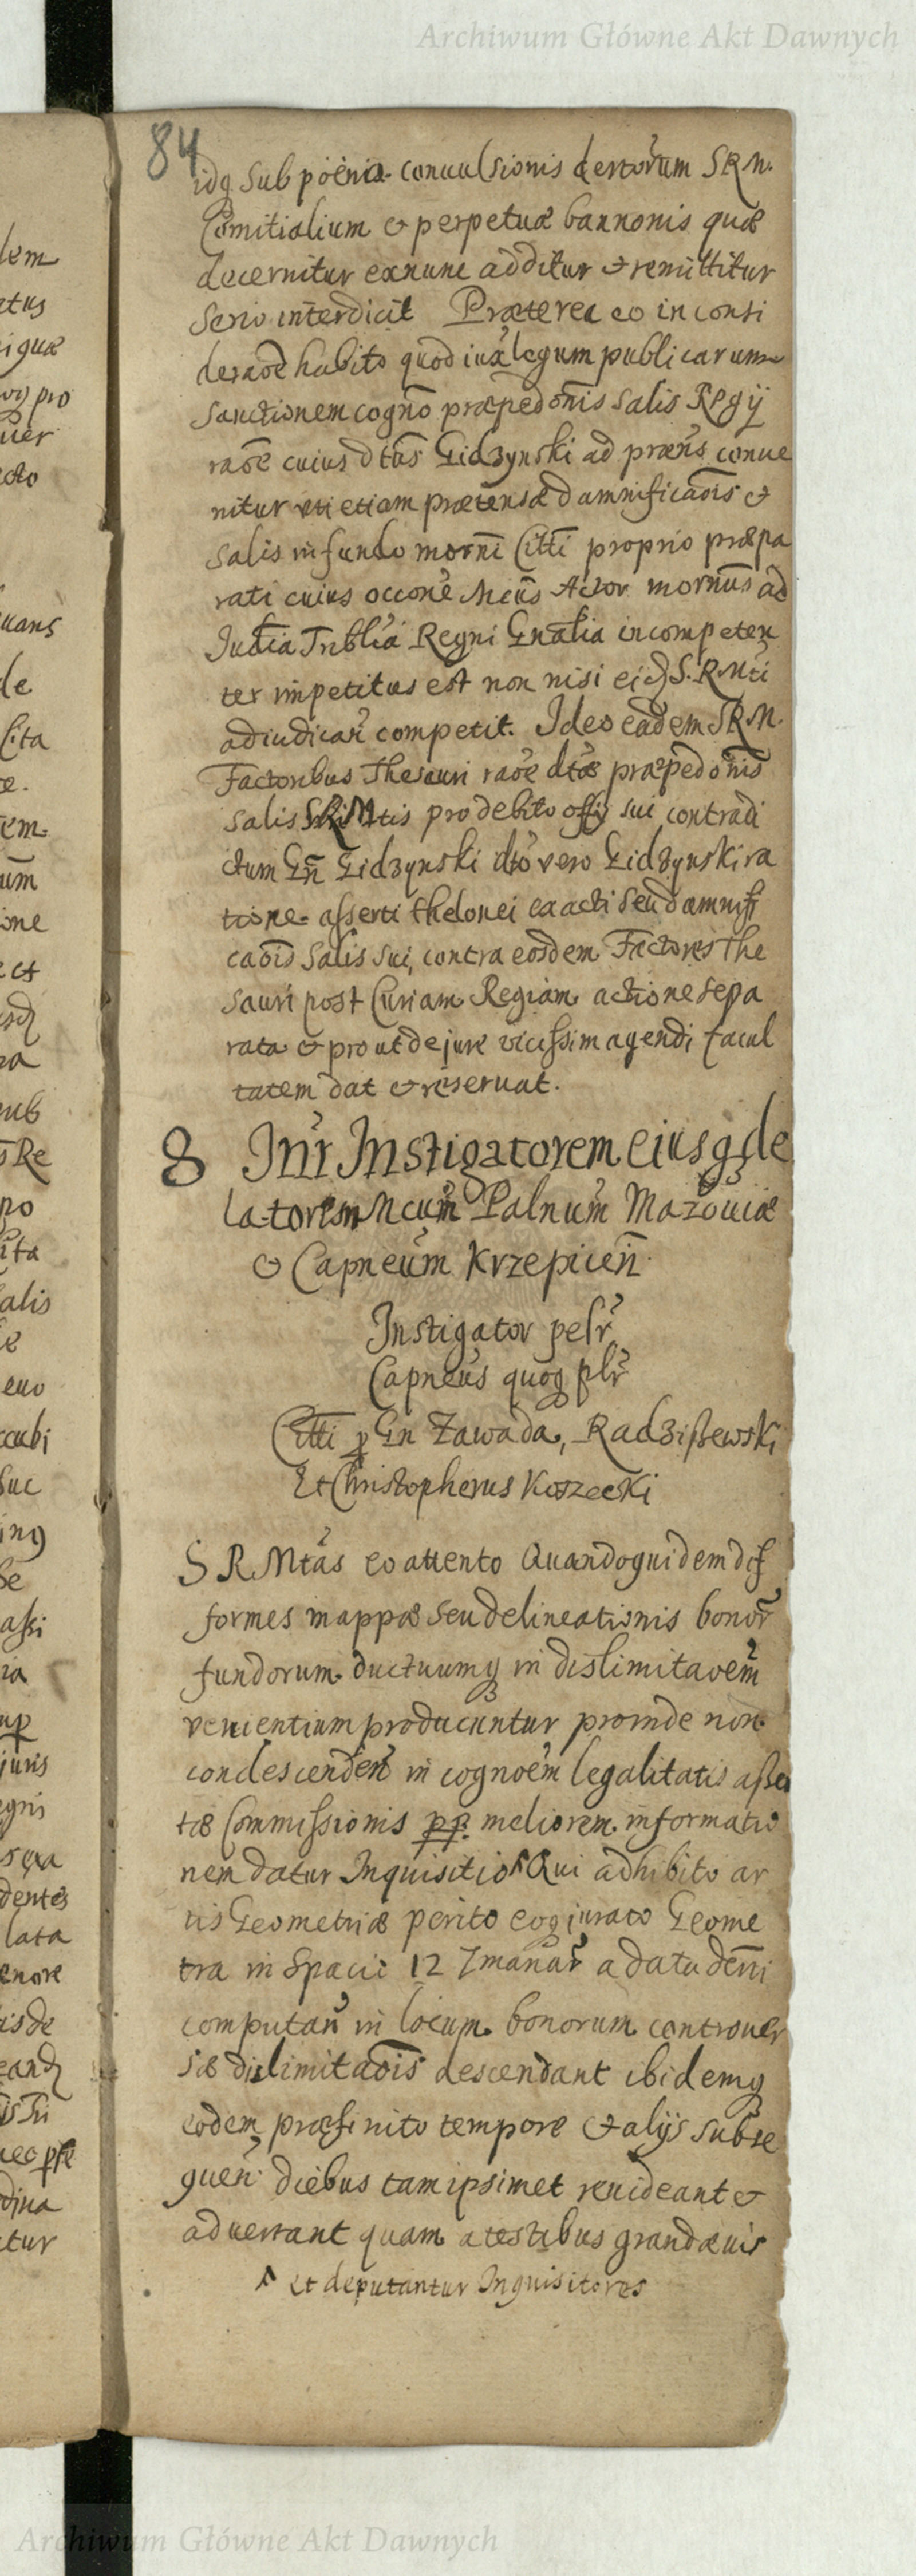 Archiwum Główne Akt Dawnych
84
idq sub poena convulsionis dertorum SRM.
Comitialium & perpetuæ bannonis quæ
decernitur exnunc additur & remittitur
serio interdicit Præterea eo in consi
deraoe habito quod iuxa legum publicarum
sanctionem cogno præpedonis salis Regij
raoe cuius dtus Gidzynski ad præns conve
nitur uti etiam prætensæ damnificaois &
salis in fundo morni Citti proprio præpa
rati cuius occone Mcus Actor mornus ad
Judia Triblia Regni Gnalia incompeten
ter impetitus est non nisi eijd S.R.Mti
adiudicari competit. Ideo eadem SRM.
Factoribus Thesauri raoe dtæ præpedonis
salis SRMtis pro debito offy sui contradi
ctum Gn Gidzynski dto vero Gidzynski ra
tione asserti thelonei exacti seu damnifi
caois salis sui, contra eosdem Factores The
sauri post Curiam Regiam actione sepa
rata & prout de jure vicissim agendi facul
tatem dat & reservat.
8 Intr Instigatorem eiusq de
latorem Mcum Palnum Mazoviæ
& Capneum Krzepicen
Instigator pelr
Capneus quoq plr
Citti p Gn Zawada, Radziszewski
Et Christopherus Koszecki
S R Mtas eo attento Quandoquidem dif
formes mappæ seu delineationis bonor
fundorum ductuumq in dislimitaoem
venientium producuntur proinde non
condescenden in cognoem legalitatis asser
tæ Commissionis pp. meliorem informatio
nem datur Inquisitio ^ Qui adhibito ar
tis Geometriæ perito eoq jurato Geome
tra in spacii 12 7manar a data denti
computan in locum bonorum controver
sæ dislimitaois descendant ibidemq
eodem præfinito tempore & alijs subse
quen diebus tam ipsimet revideant &
advertant quam a testibus grandævis
^ Et deputantur Inquisitores
Archiwum Główne Akt Dawnych